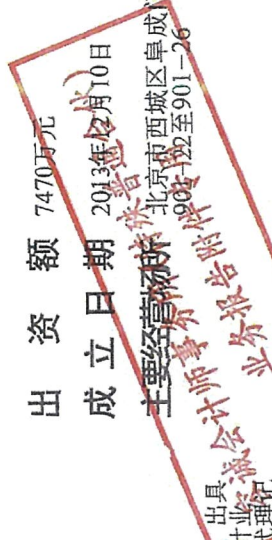 出资额 7470万元
成立日期 2013年12月10日
主要经营场所 北京市西城区阜成
901-22至901-26
诚会计师事务所(特殊普通合伙)
业务报告附件专用
出具